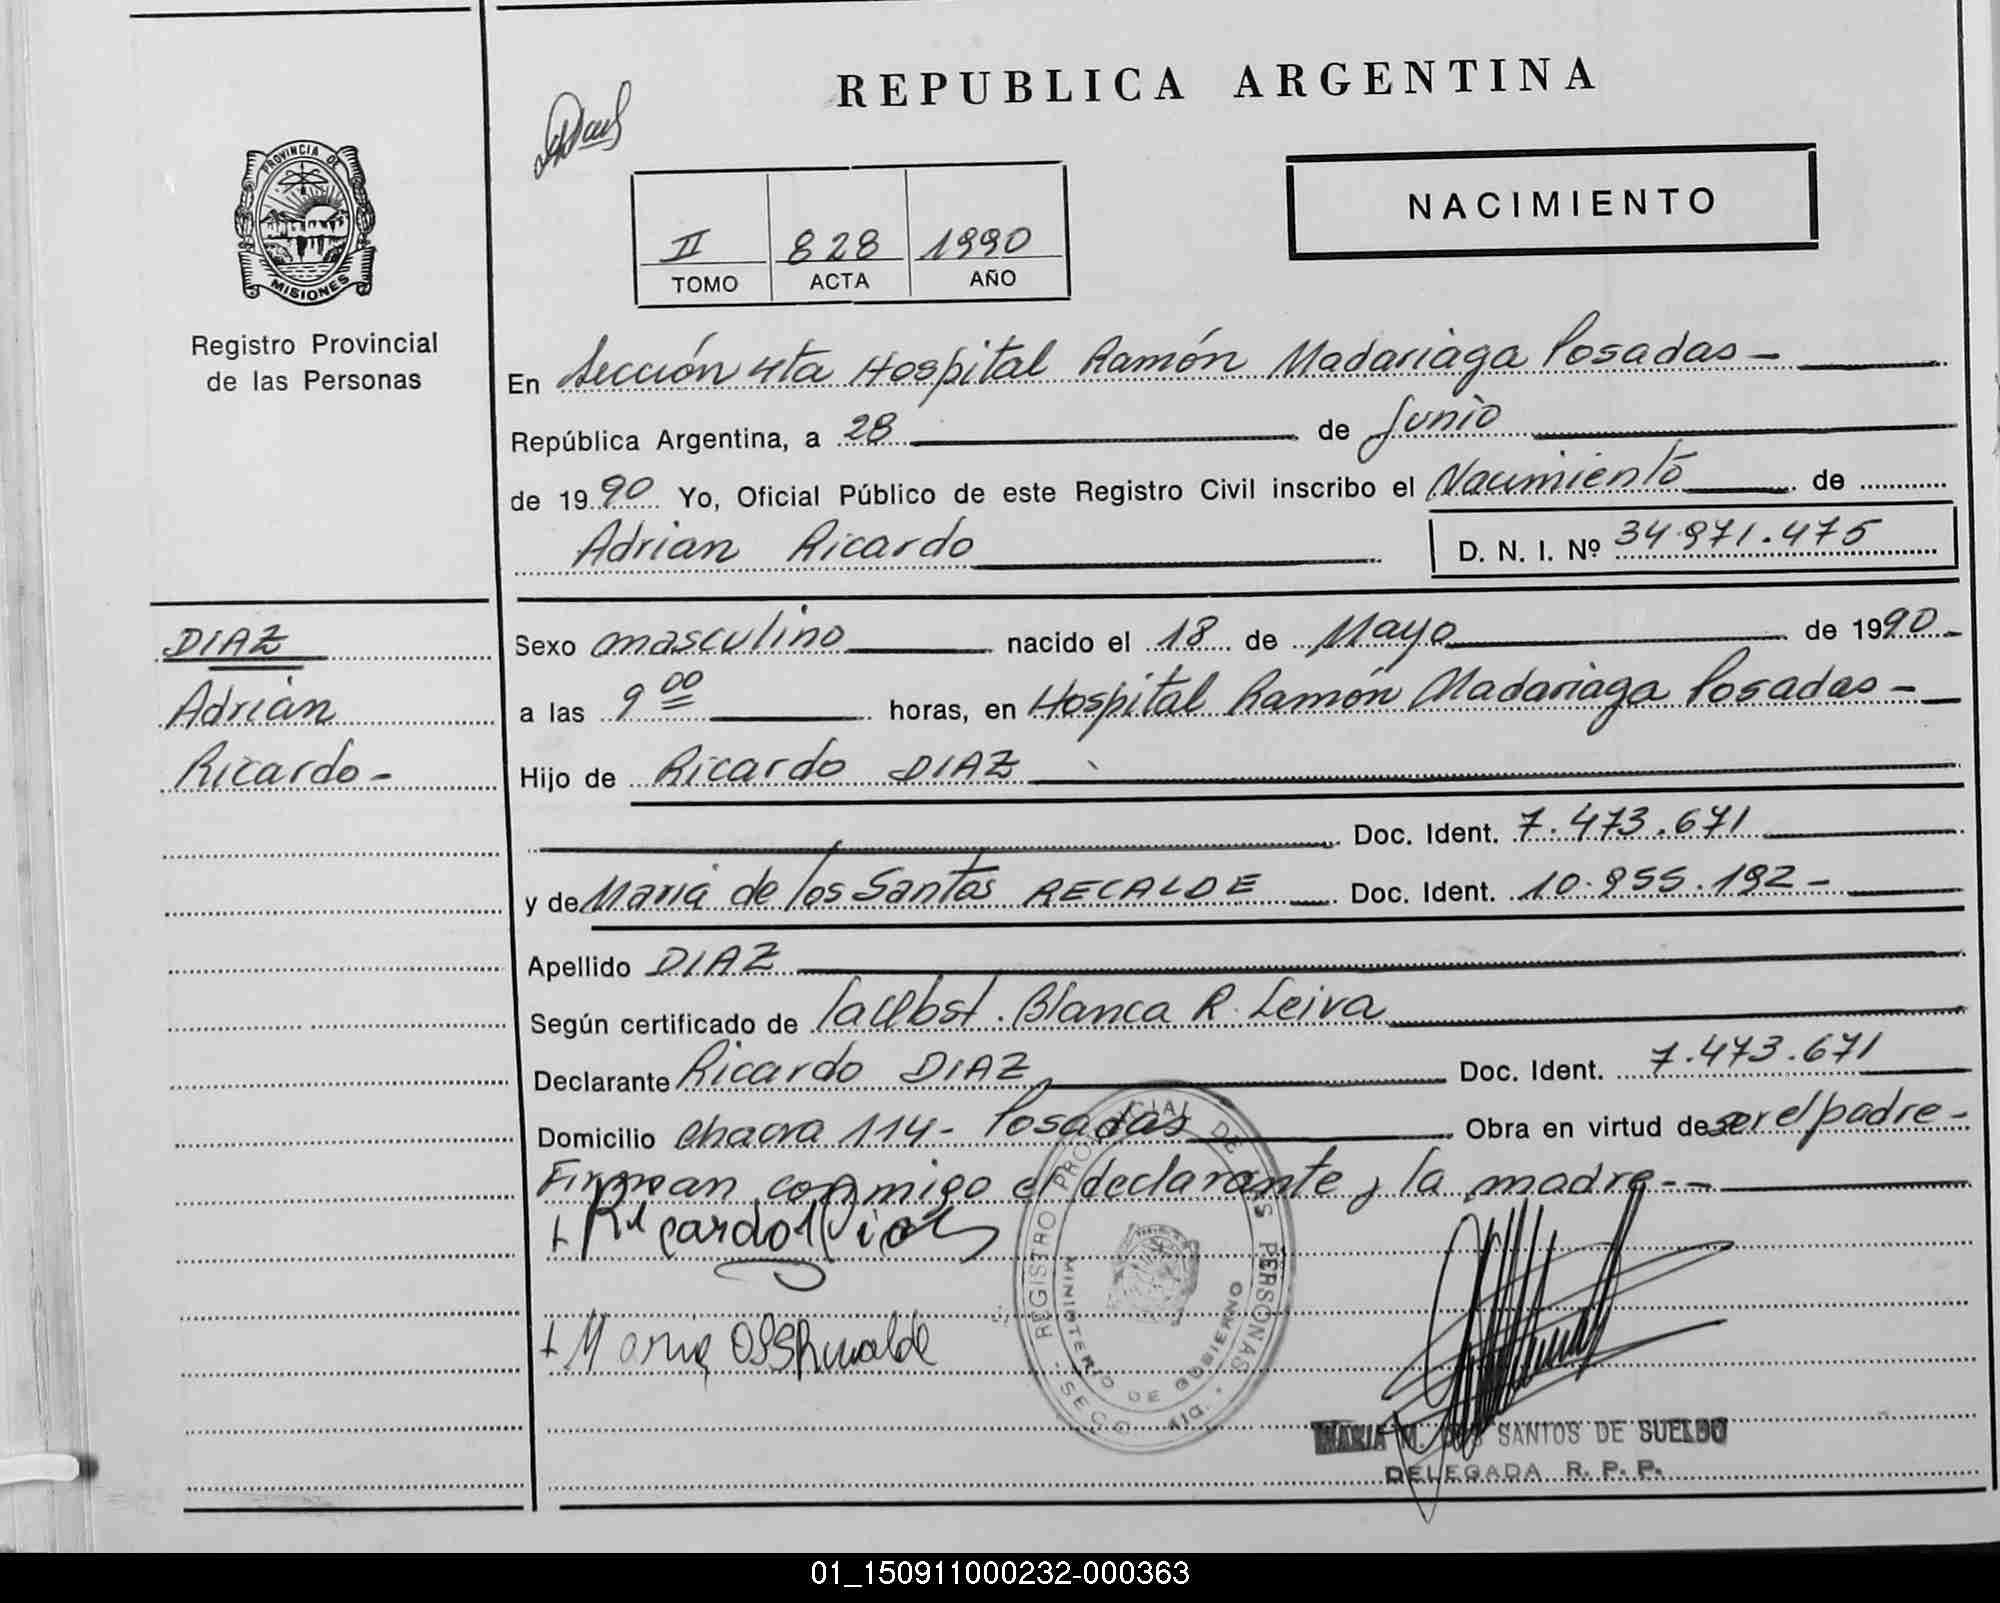 REPUBLICA ARGENTINA
PROVINCIA DE
MISIONES
Registro Provincial
de las Personas
NACIMIENTO
II 828 1990
TOMO ACTA AÑO
En Sección 4ta Hospital Ramón Madariaga Posadas-
República Argentina, a 28 de Junio
de 1990 Yo, Oficial Público de este Registro Civil inscribo el Nacimiento de
Adrian Ricardo D. N. I. Nº 34.971.475
DIAZ
Adrián
Ricardo-
Sexo masculino nacido el 18 de Mayo de 1990-
a las 9 00 horas, en Hospital Ramón Madariaga Posadas-
Hijo de Ricardo DIAZ
Doc. Ident. 7.473.671
y de María de los Santos RECALDE Doc. Ident. 10.955.192-
Apellido DIAZ
Según certificado de la Obst. Blanca R. Leiva
Declarante Ricardo DIAZ Doc. Ident. 7.473.671
Domicilio chacra 114- Posadas Obra en virtud de ser el padre-
Firman conmigo el declarante y la madre--
+ Ricardo Diaz
+ Maria
REGISTRO PROVINCIAL DE LAS PERSONAS
MINISTERIO DE GOBIERNO
SECC. 4ta.
MARIA M. DOS SANTOS DE SUELDO
DELEGADA R. P. P.
01_150911000232-000363